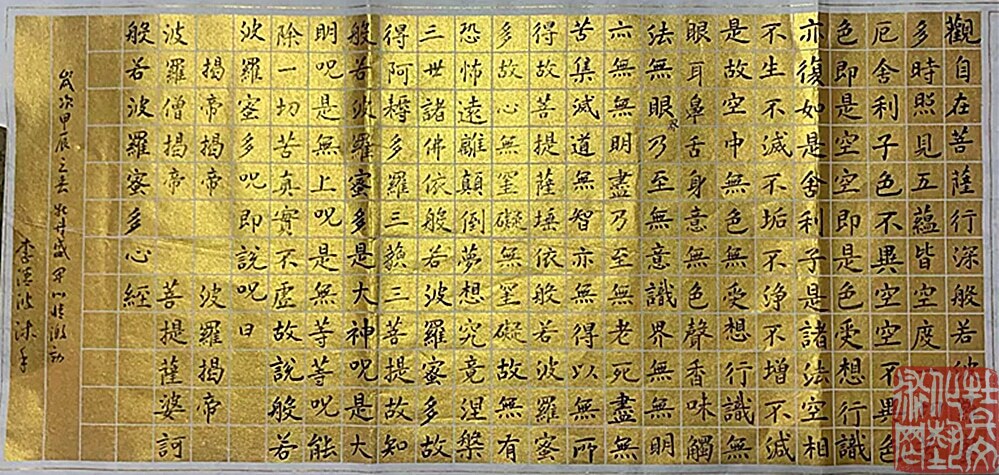 觀自在菩薩行深般若波
多時照見五蘊皆空度
厄舍利子色不異空空不異色
色即是空空即是色受想行識
亦復如是舍利子是諸法空相
不生不滅不垢不淨不增不減
是故空中無色無受想行識無
眼耳鼻舌身意無色聲香味觸
法無眼界乃至無意識界無無明
亦無無明盡乃至無老死盡無
苦集滅道無智亦無得以無所
得故菩提薩埵依般若波羅蜜
多故心無罣礙無罣礙故無有
恐怖遠離顛倒夢想究竟涅槃
三世諸佛依般若波羅蜜多故
得阿耨多羅三藐三菩提故知
般若波羅蜜多是大神呪是大
明呪是無上呪是無等等呪能
除一切苦真實不虛故說般若
波羅蜜多呪即說呪曰
揭帝揭帝 波羅揭帝
波羅僧揭帝 菩提薩婆訶
般若波羅蜜多心經
歲次甲辰之春
李 沐手